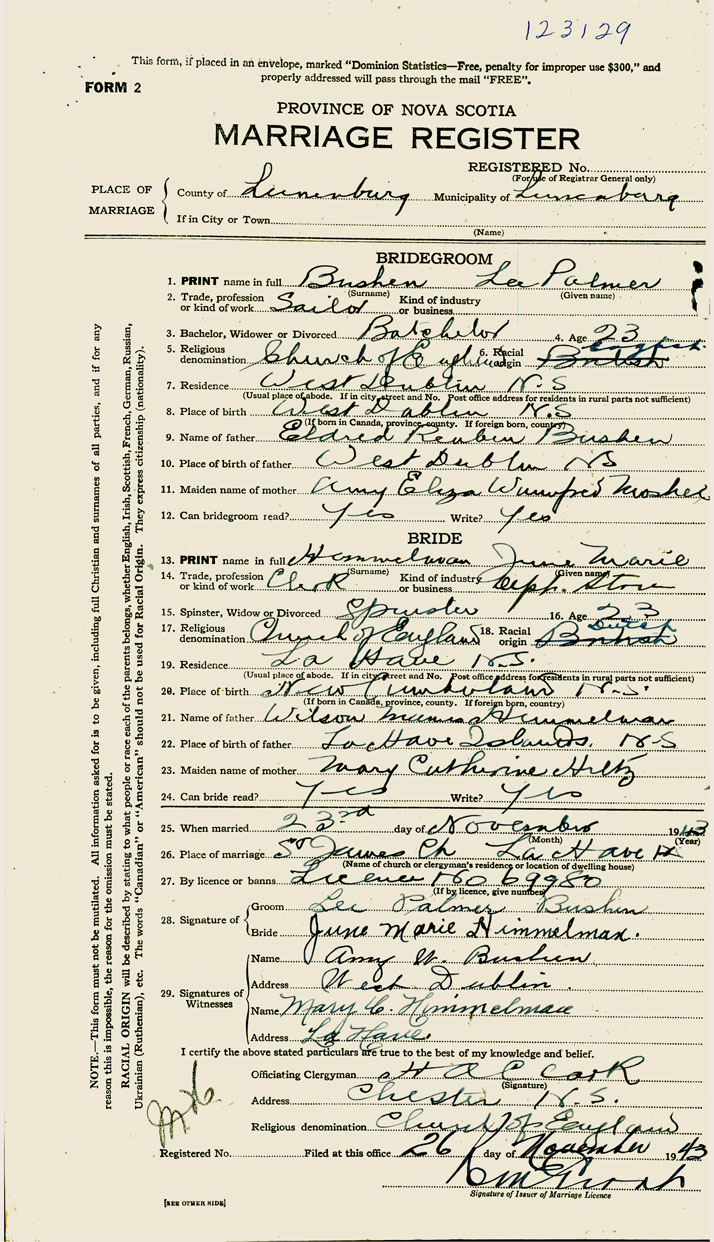 123129
This form, if placed in an envelope, marked "Dominion Statistics—Free, penalty for improper use $300," and
properly addressed will pass through the mail "FREE".
FORM 2
PROVINCE OF NOVA SCOTIA
MARRIAGE REGISTER
REGISTERED No.
(For use of Registrar General only)
PLACE OF MARRIAGE
County of Lunenburg Municipality of Lunenburg
If in City or Town
(Name)
BRIDEGROOM
1. PRINT name in full Bushen Lee Palmer
(Surname) (Given name)
2. Trade, profession or kind of work Sailor Kind of industry or business
3. Bachelor, Widower or Divorced Batchelor 4. Age 23
5. Religious denomination Church of England 6. Racial origin British English
7. Residence West Dublin N.S
(Usual place of abode. If in city, street and No. Post office address for residents in rural parts not sufficient)
8. Place of birth West Dublin N.S
(If born in Canada, province, county. If foreign born, country)
9. Name of father Eldred Reuben Bushen
10. Place of birth of father West Dublin NS
11. Maiden name of mother Amy Eliza Winnifred Mosher
12. Can bridegroom read? Yes Write? Yes
BRIDE
13. PRINT name in full Himmelman June Marie
(Surname) (Given name)
14. Trade, profession or kind of work Clerk Kind of industry or business Dept. Store
15. Spinster, Widow or Divorced Spinster 16. Age 23
17. Religious denomination Church of England 18. Racial origin British Dutch
19. Residence La Have N.S.
(Usual place of abode. If in city, street and No. Post office address for residents in rural parts not sufficient)
20. Place of birth New Cumberland N.S.
(If born in Canada, province, county. If foreign born, country)
21. Name of father Wilson Himmelman
22. Place of birth of father La Have Islands. N.S
23. Maiden name of mother Mary Catherine Hiltz
24. Can bride read? Yes Write? Yes
25. When married 23rd day of November 1943
(Month) (Year)
26. Place of marriage St James Ch La Have
(Name of church or clergyman's residence or location of dwelling house)
27. By licence or banns Licence No 69980
(If by licence, give number)
28. Signature of
Groom Lee Palmer Bushen
Bride June Marie Himmelman.
29. Signatures of Witnesses
Name Amy W. Bushen
Address West Dublin
Name Mary C. Himmelman
Address La Have.
I certify the above stated particulars are true to the best of my knowledge and belief.
Officiating Clergyman H A C Cark
(Signature)
Address Chester N.S.
Religious denomination Church of England
Registered No. Filed at this office 26 day of November 1943
Signature of Issuer of Marriage Licence
[SEE OTHER SIDE]
NOTE.—This form must not be mutilated. All information asked for is to be given, including full Christian and surnames of all parties, and if for any
reason this is impossible, the reason for the omission must be stated.
RACIAL ORIGIN will be described by stating to what people or race each of the parents belongs, whether English, Irish, Scottish, French, German, Russian,
Ukrainian (Ruthenian), etc. The words "Canadian" or "American" should not be used for Racial Origin. They express citizenship (nationality).